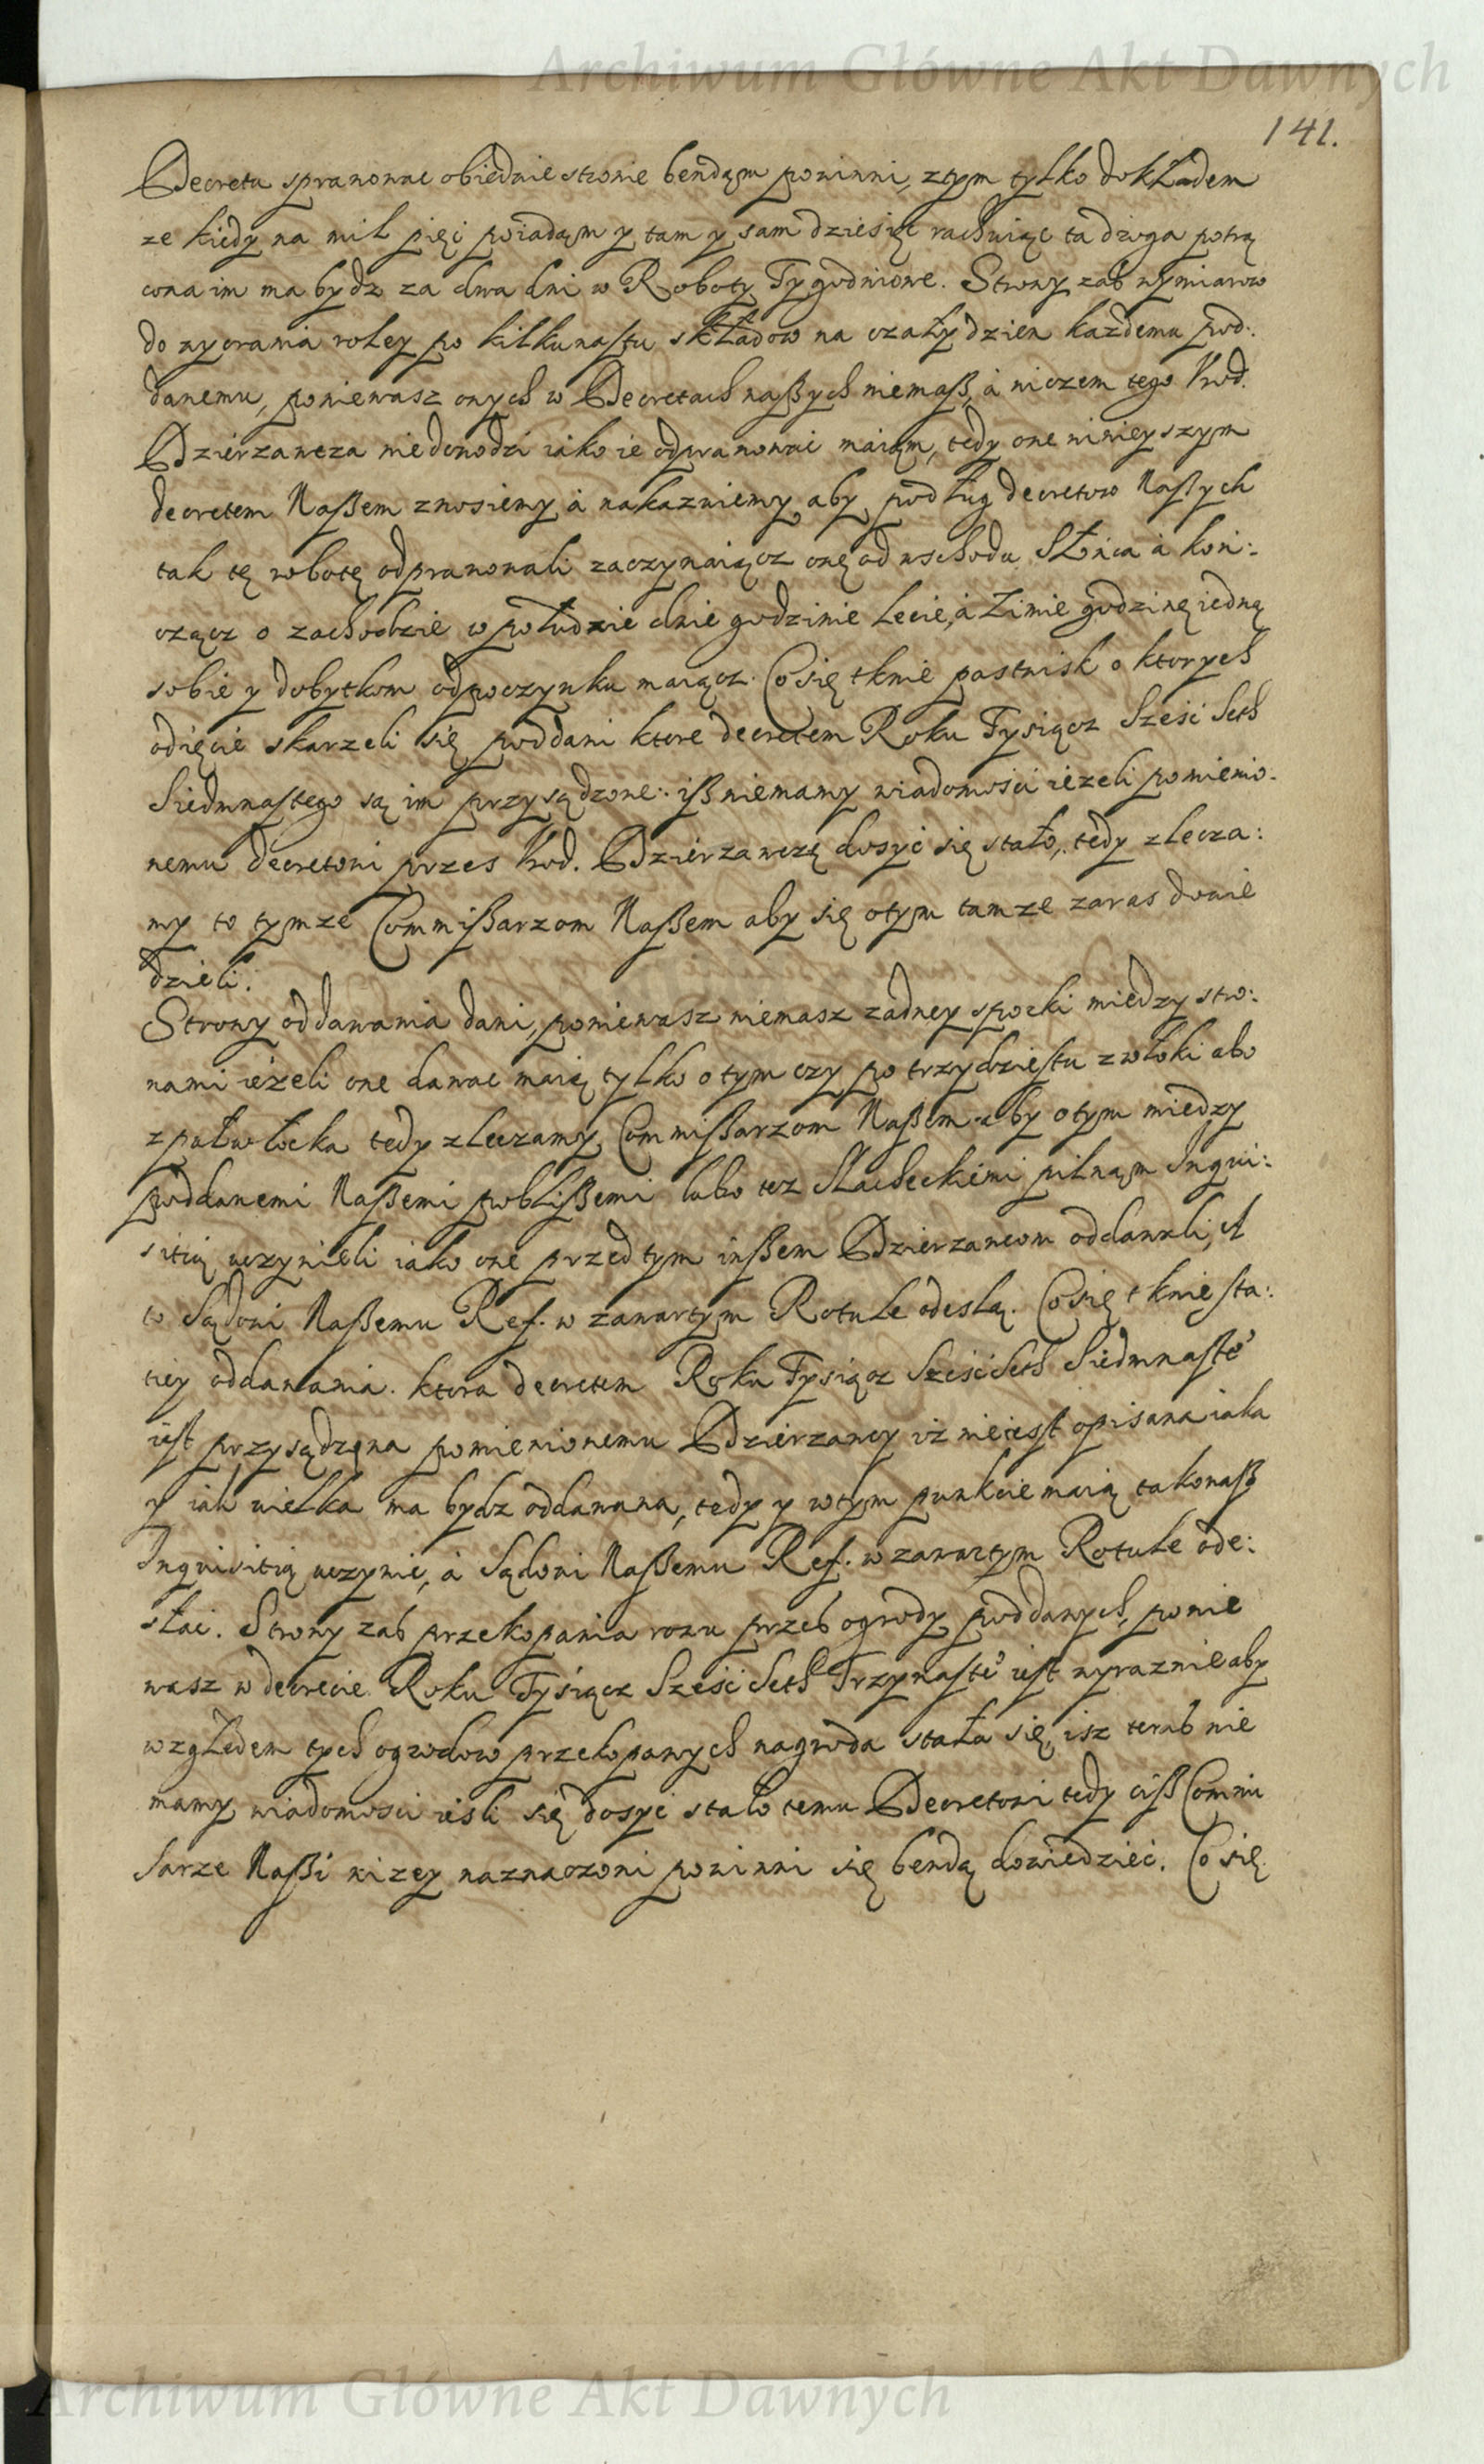 Archiwum Główne Akt Dawnych
141.
Decretu sprawowac obiedwie stronie bendąm powinni, ztym tylko dokładem
ze kiedy na mil pięć poiadąm y tam y sam dziesięc rachuiąc ta droga potrą
cona im ma bydz za dwa dni w Roboty Tygodniowe. Strony zaś wymiarow
do wyorania roley po kilkunastu składow na czały dzien kazdemu pod:
danemu, poniewasz onych w Decretach naßych niemaß, á niczem tego Urod.
Dzierzawcza niedowodzi iako ie odprawowac maiąm, tedy one ninieyszym
decretem Naßem znosiemy á nakazuiemy, aby podług decretow Naßych
tak tę robotę odprawowali zaczynaiącz onę od wschodu Słońca á koń:
czącz o zachodzie w południe dwie godzinie Lecie, á Zimie godzinę iedną
sobie y dobytkom odpoczynku maiącz. Co się tknie pastwisk o ktorych
odięcie skarzeli się poddani ktore decretem Roku Tysiącz Sześć Seth
Siedmnastego są im przysądzone: iß niemamy wiadomości iezeli pomienio.
nemu decretowi przes Urod. Dzierzawczę dosyć się stało, tedy zlecza:
my to tymze Commißarzom Naßem aby się otym tamze zaras dowie
dzieli.
Strony oddawania dani, poniewasz niemasz zadney sporki między stro:
nami iezeli one dawac maią tylko o tym czy po trzydziestu z włoki abo
z pałwłocka tedy zleczamy Commißarzom Naßem aby otym między
poddanemi Naßemi poblißemi lubo tez Slacheckiemi pilnąm Inqui:
sitią uczynieli iako one przed tym inßem Dzierzawcom oddawali, A
to Sądowi Naßemu Ref. w zawartym Rotule odeslą. Co się tknie sta:
ciey oddawania. ktora decretem Roku Tysiącz Sześć Seth Siedmnaste°
iest przysądzona pomienionemu Dzierzawcy iz nieiest opisana iaka
y iak wielka ma bydz oddawana, tedy y wtym punkcie maią takowaß
Inquisitią uczynic, á Sądowi Naßemu Ref. w zawartym Rotule ode:
słac. Strony zaś przekopania rowu przes ogrody poddanych, ponie
wasz w decrecie Roku Tysiącz Sześć Seth Trzynaste° iest wyraznie aby
względem tych ogrodow przekopanych nagroda stała się, isz teras nie
mamy wiadomosci iesli się dosyc stało temu Decretowi tedy ciß Commi
sarze Naßi wizey naznaczoni powinni się bendą dowiedziec. Co się
Archiwum Główne Akt Dawnych